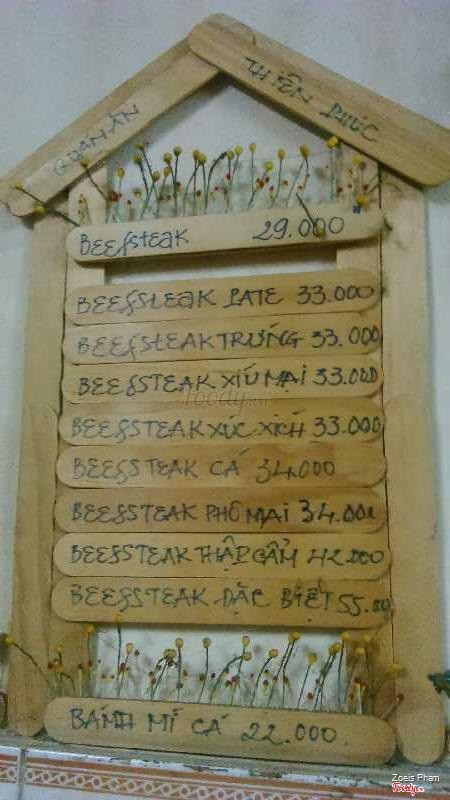 QUÁN ĂN
THIÊN PHÚC
BEEfstEaK 29.000
BEEfstEaK PATE 33.000
BEEfstEAK TRỨNG 33.000
BEEfSTEAK XÍU MẠI 33.000
BEEfSTEAK XÚC XÍCH 33.000
BEEfSTEAK CÁ 34.000
BEEfSTEAK PHÔ MAI 34.000
BEEfSTEAK THẬP CẨM 42.000
BEEfSTEAK ĐẶC BIỆT 55.000
BÁNH MÌ CÁ 22.000
foody.vn
Zoeis Pham
Foody.vn